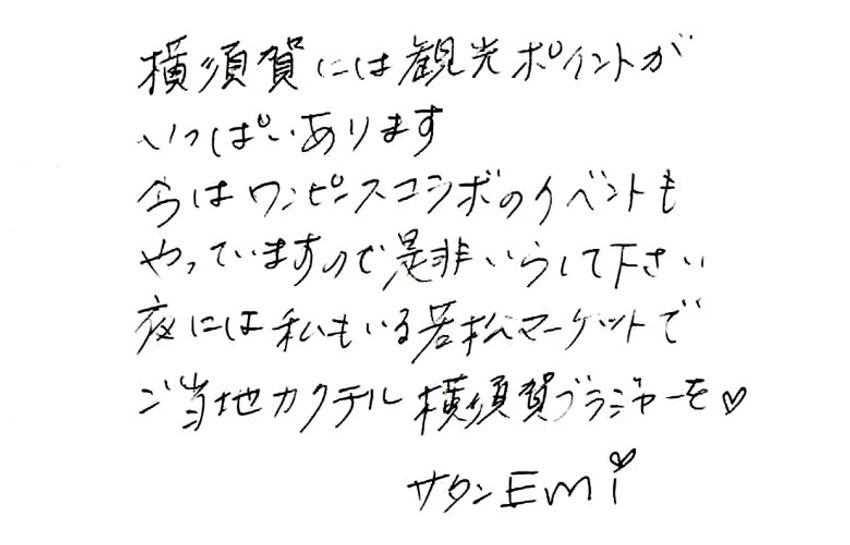 横須賀には観光ポイントが
いっぱいあります
今はワンピースコラボのイベントも
やっていますので是非いらして下さい
夜には私もいる若松マーケットで
ご当地カクテル横須賀ブラジャーを♡
サタンEmi